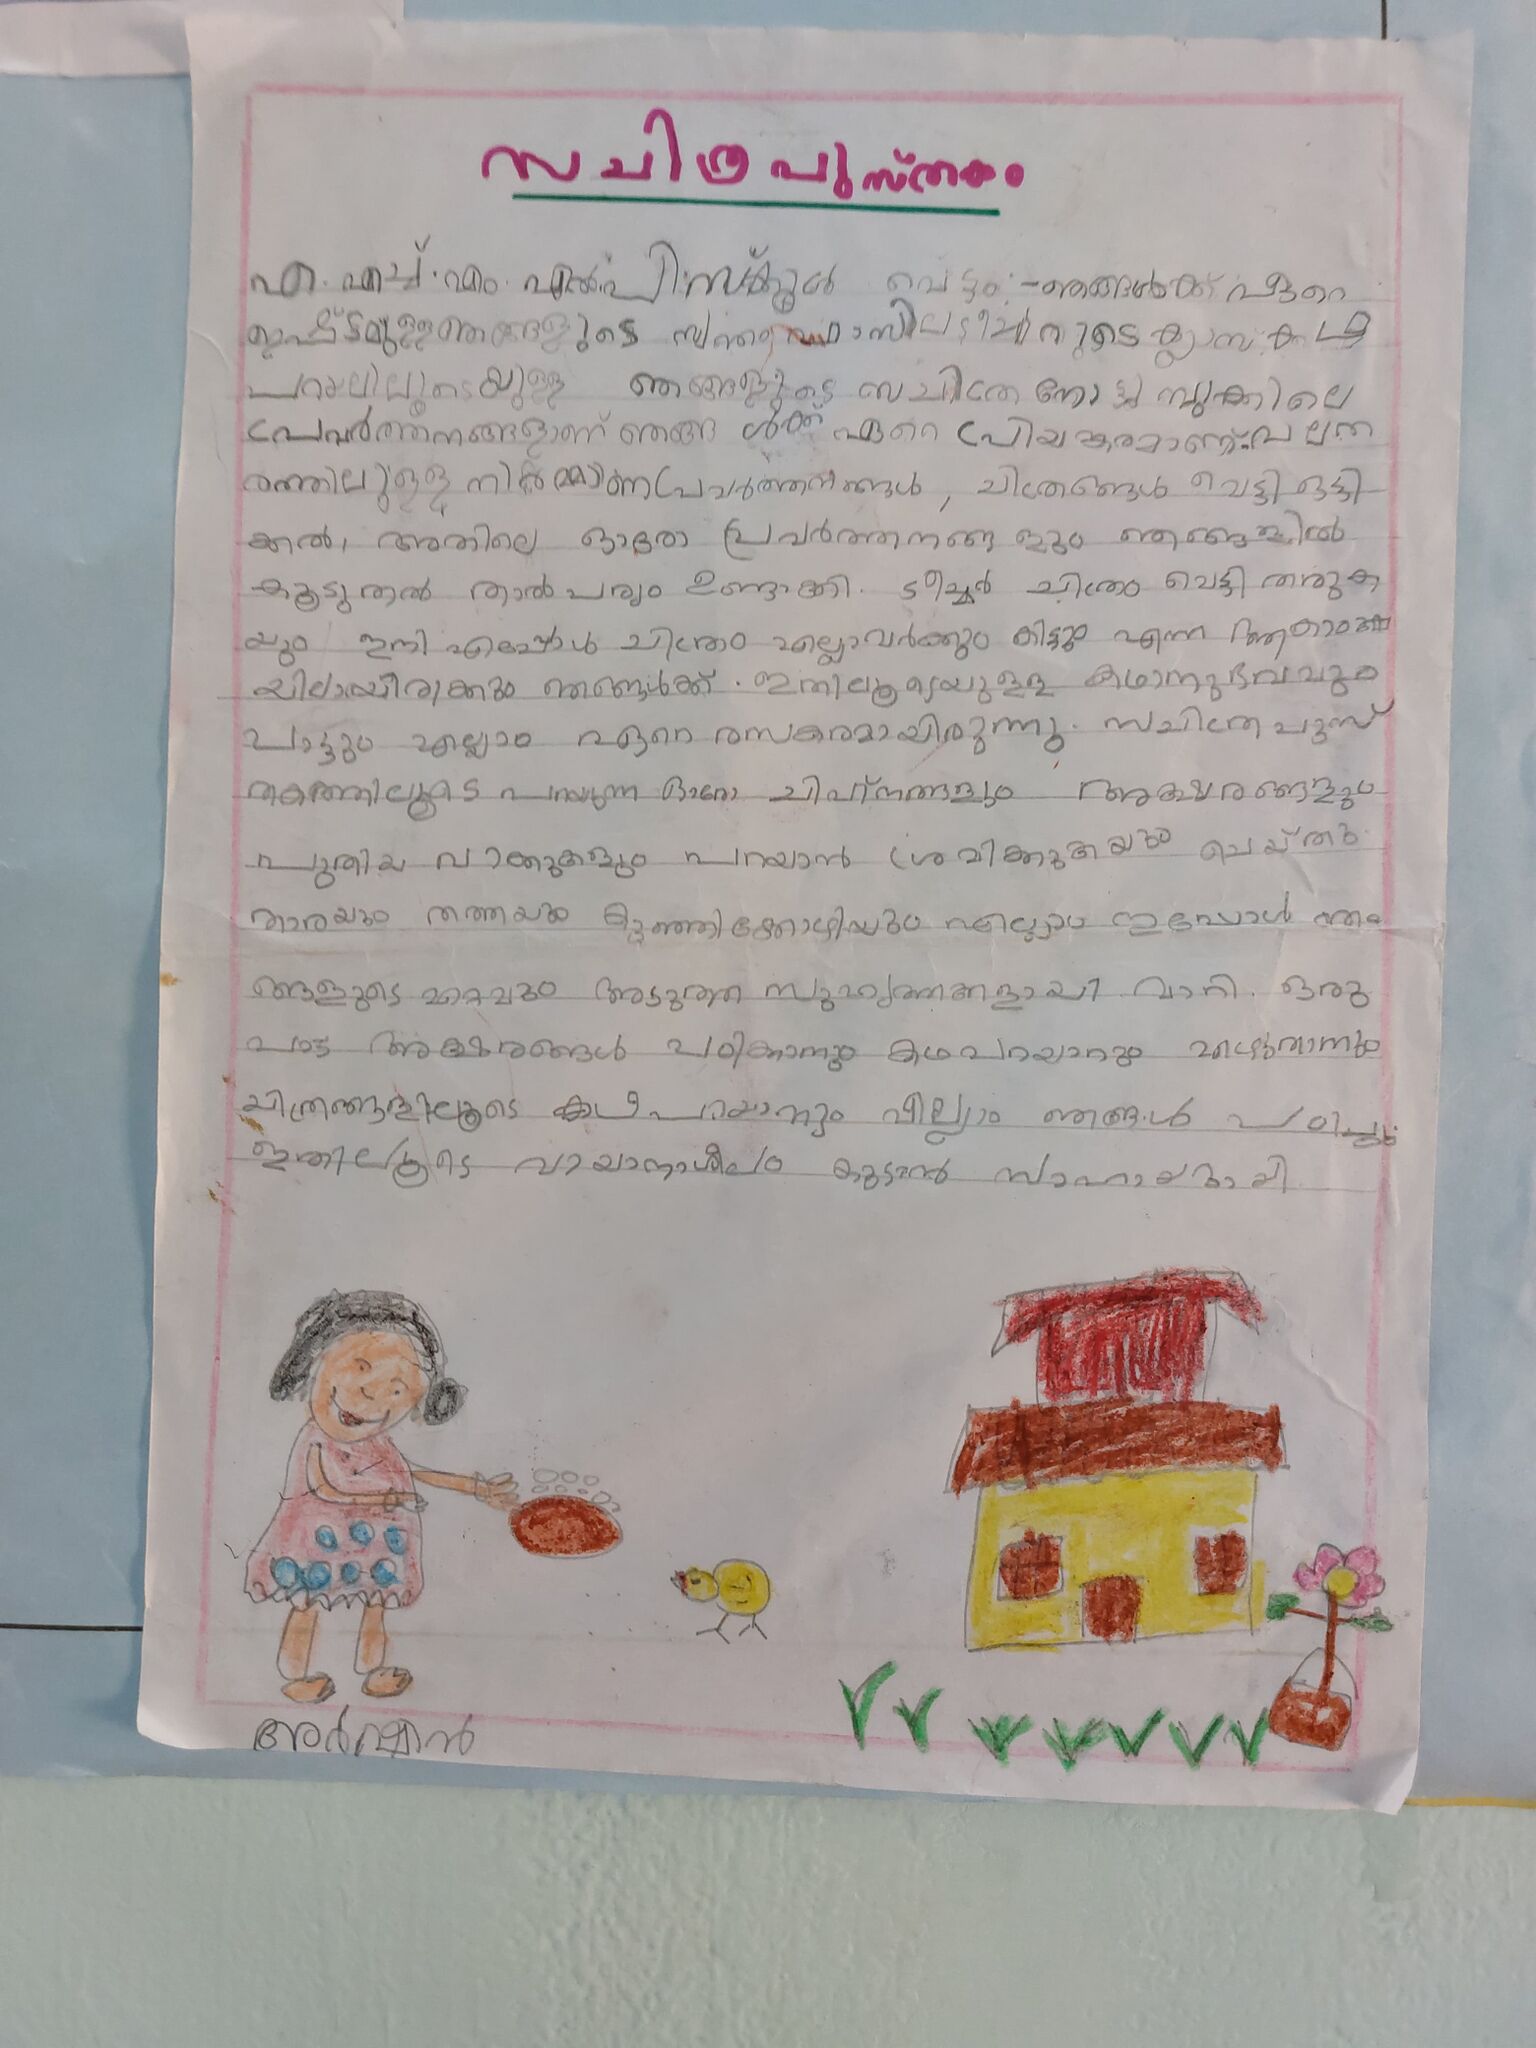 സചിത്രപുസ്തകം
എ.എച്ച്.എം.എൽ.പി.സ്ക്കൂൾ വെട്ടം :-ഞങ്ങൾക്ക് ഏറെ
ഇഷ്ട്ടമുള്ള ഞങ്ങളുടെ ക്ലാസ് കഥ
പറച്ചിലിലൂടെയുള്ള ഞങ്ങളുടെ സചിത്ര നോട്ട് ബുക്കിലെ
പ്രവർത്തനങ്ങളാണ് ഞങ്ങൾക്ക് ഏറെ പ്രിയങ്കരമാണ്. പലത
രത്തിലുള്ള നിർമ്മാണപ്രവർത്തനങ്ങൾ, ചിത്രങ്ങൾ വെട്ടി ഒട്ടി
ക്കൽ, അതിലെ ഓരോ പ്രവർത്തനങ്ങളും ഞങ്ങളിൽ
കൂടുതൽ താൽപര്യം ഉണ്ടാക്കി. ടീച്ചർ ചിത്രം വെട്ടി തരുക
യും ഇനി എപ്പോൾ ചിത്രം എല്ലാവർക്കും കിട്ടും എന്ന
യിലായിരുക്കും ഞങ്ങൾക്ക്. ഇതിലൂടെയുള്ള കഥാനുഭവവും
പാട്ടും എല്ലാം ഏറെ രസകരമായിരുന്നു. സചിത്ര പുസ്
തകത്തിലൂടെ പറയുന്ന ഓരോ ചിഹ്നങ്ങളും അക്ഷരങ്ങളും
പുതിയ വാക്കുകളും പറയാൻ ശ്രമിക്കുകയും ചെയ്തു.
താരയും തത്തയും കുഞ്ഞിക്കോഴിയും എല്ലാം ഇപ്പോൾ ഞ
ങ്ങളുടെ ഏറ്റവും അടുത്ത സുഹൃത്തുക്കളായി മാറി. ഒരു
പാട് അക്ഷരങ്ങൾ പഠിക്കാനും കഥപറയാനും എഴുതാനും
ചിത്രങ്ങളിലൂടെ കഥ പറയാനും എല്ലാം ഞങ്ങൾ പഠിച്ചു
ഇതിലൂടെ വായനാശീലം കൂടാൻ സാഹായമായി.
അർഷാൻ